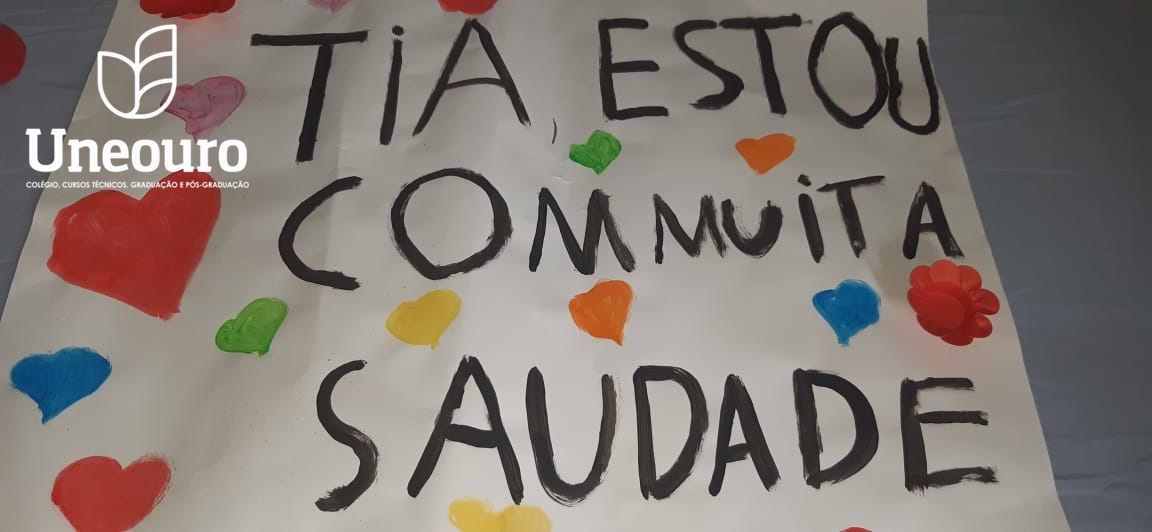 Uneouro
COLÉGIO, CURSOS TÉCNICOS, GRADUAÇÃO E PÓS-GRADUAÇÃO
TiA, ESTOU
COM MUiTA
SAUDADE